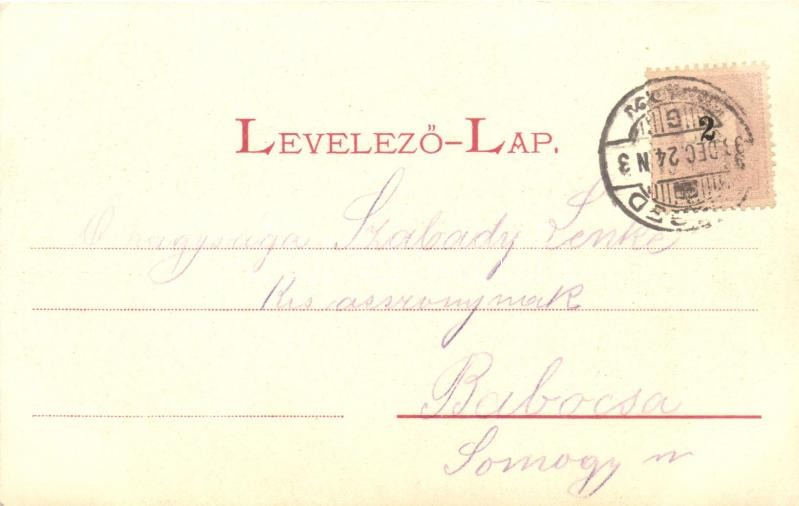 LEVELEZŐ-LAP.
2
DEC 24 N 3
Ő nagysága Szabady Lenke
Kis asszonynak
Babócsa
Somogy m